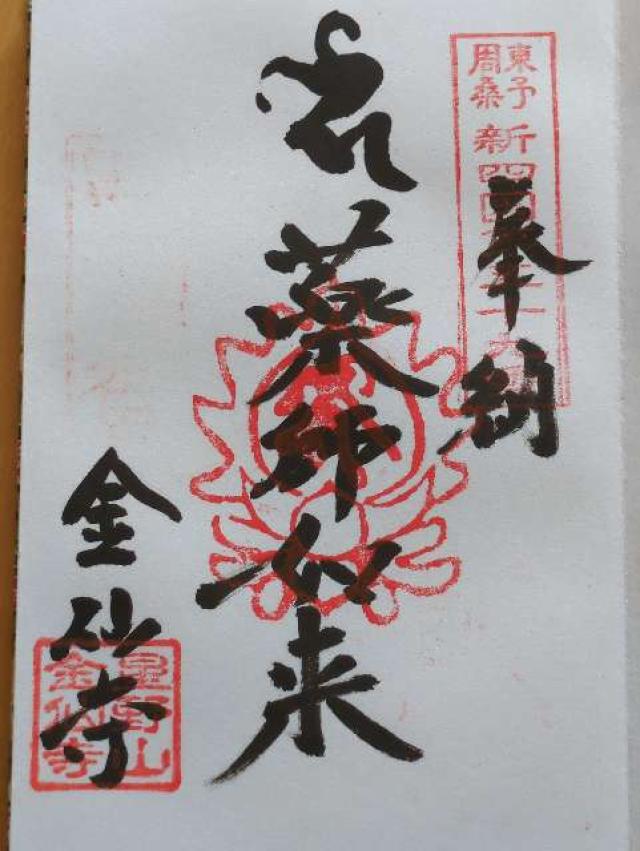 東予
周桑
新四國
奉納
薬師如来
金仙寺
星野山
金仙寺